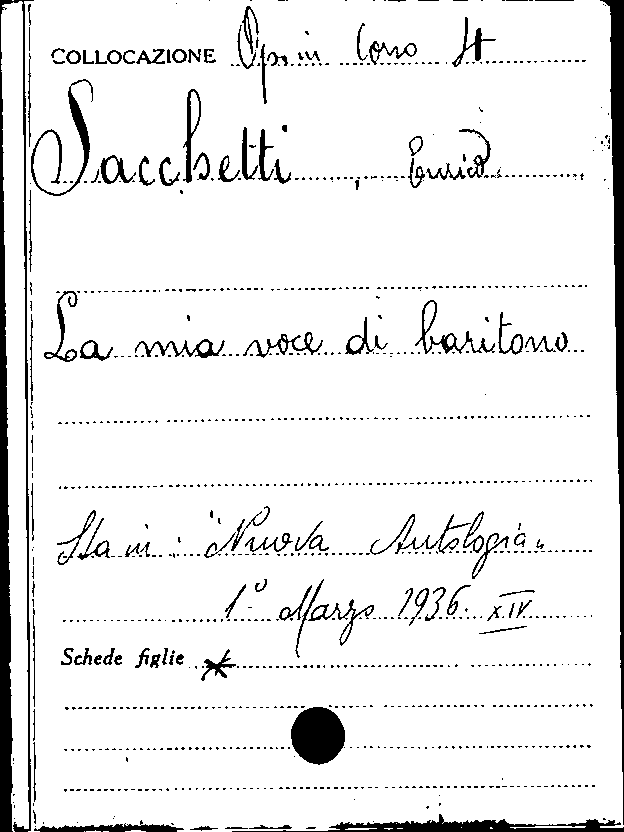 COLLOCAZIONE Op. in Corso St
Sacchetti, Enrico
La mia voce di baritono
Sta in: "Nuova Antologia"
1º Marzo 1936. XIV
Schede figlie *